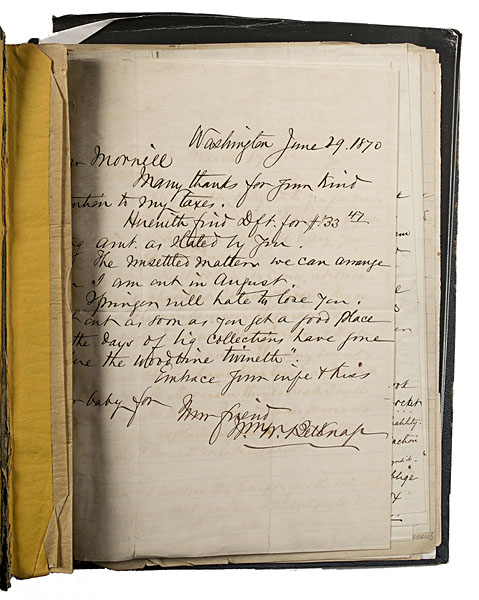 Washington June 29. 1870
Morrill
Many thanks for your kind
ntion to my taxes.
Herewith find Dft. for $33 47
g amt. as stated by you.
The unsettled matters we can arrange
I am out in August.
Springer will hate to lose you.
out as soon as you get a good place
the days of big collections have gone
the woodbine twineth".
Embrace your wife & kiss
baby for
Your friend
Wm. W. Belknap